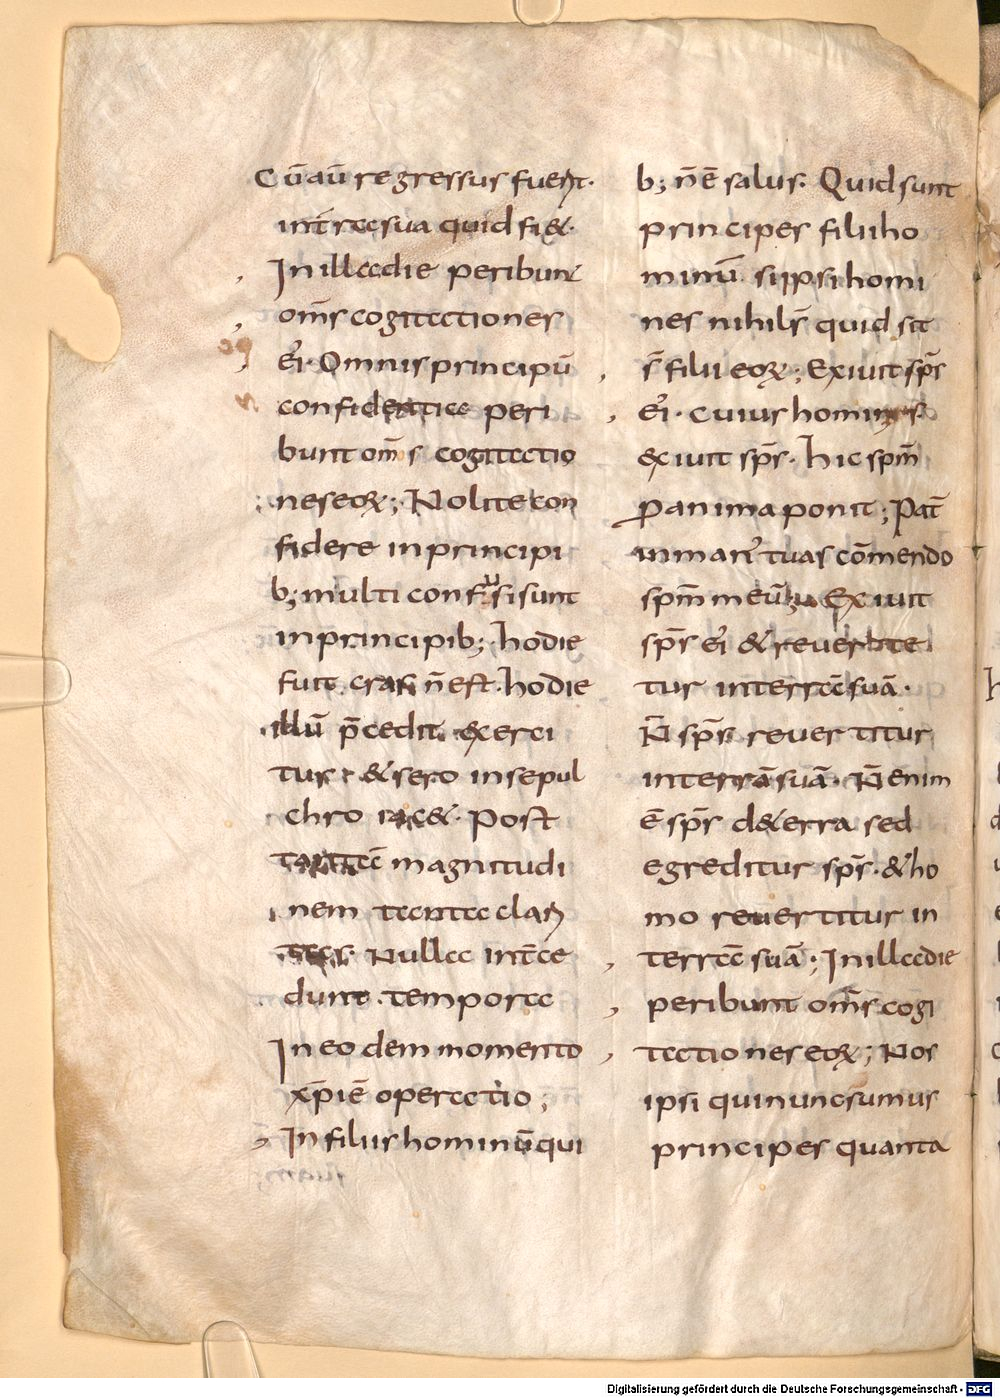 Cū aū regressus fuerit.
int̄ra sua quid fi&.
In illa die peribunt
om̄s cogitationes
ei'. Omnis principū
confidentia peri
bunt om̄s cogitatio
nes eoꝝ; Nolite con
fidere in principi
b; multi confusi sunt
in principib; hodie
fuit cras n̄ est. hodie
illū p̄cedit exerci
tur & sero in sepul
chro iac&. Post
magnitudi
nem tanta clari
Nulla int̄ce
dunt tempora
In eodem momento
xp̄iē operatio;
In filiis hominū qui
b; n̄ ē salus. Quid sunt
principes filii ho
minū si ipsi homi
nes nihil s̄ quid sit
s̄ filii eoꝝ; Exiuit sp̄s
ei'. cuius hominis
exiuit sp̄s. hic sp̄m
ꝓ anima ponit; Pat̄
in man' tuas cōmendo
sp̄m meū Exiuit
sp̄s ei' & reuerte
tur in terrā suā.
N̄ sp̄s reuertitur
in terrā suā. N̄ enim
ē sp̄s d& erra sed
egreditur sp̄s. & ho
mo reuertitur in
terrā suā; In illa die
peribunt om̄s cogi
tationes eoꝝ; Nos
ipsi qui nunc sumus
principes quanta
Digitalisierung gefördert durch die Deutsche Forschungsgemeinschaft - DFG